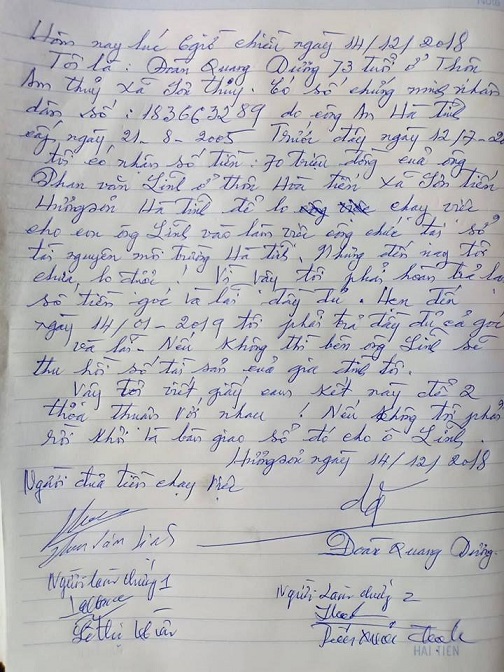 Hôm nay lúc 6giờ chiều ngày 14/12/2018
Tôi là: Đoàn Quang Dưỡng 73 tuổi ở Thôn
Am thuỷ xã Sơn thuỷ. Có số chứng minh nhân
dân số: 183663289 do công An Hà Tĩnh
cấp, ngày 21-8-2005 Trước đây ngày 12/7-20
tôi có nhận số tiền: 70 triệu đồng của ông
Phan văn Linh ở thôn Hoà tiến xã Sơn tiến
Hương sơn Hà tĩnh để lo chạy việc
cho con ông Linh vào làm việc công chức tại sở
tài nguyên môi trường Hà Tĩnh. Nhưng đến nay tôi
chưa lo được! Vì vậy tôi phải hoàn trả lại
số tiền gốc và lãi đầy đủ. Hẹn đến
ngày 14/01-2019 tôi phải trả đầy đủ cả gốc
và lãi - Nếu không thì bên ông Linh sẽ
thu hồi số tài sản của gia đình tôi.
Vậy tôi viết giấy cam kết này để 2
thoả thuận với nhau! Nếu không trị phải
rời khỏi là bàn giao sổ đỏ cho ô Linh.
Hương sơn ngày 14/12/2018
Người đưa tiền chạy việc
Đoàn Quang Dưỡng.
Người làm chứng 1
Người làm chứng 2
Lê Thị
HẢI TIẾN